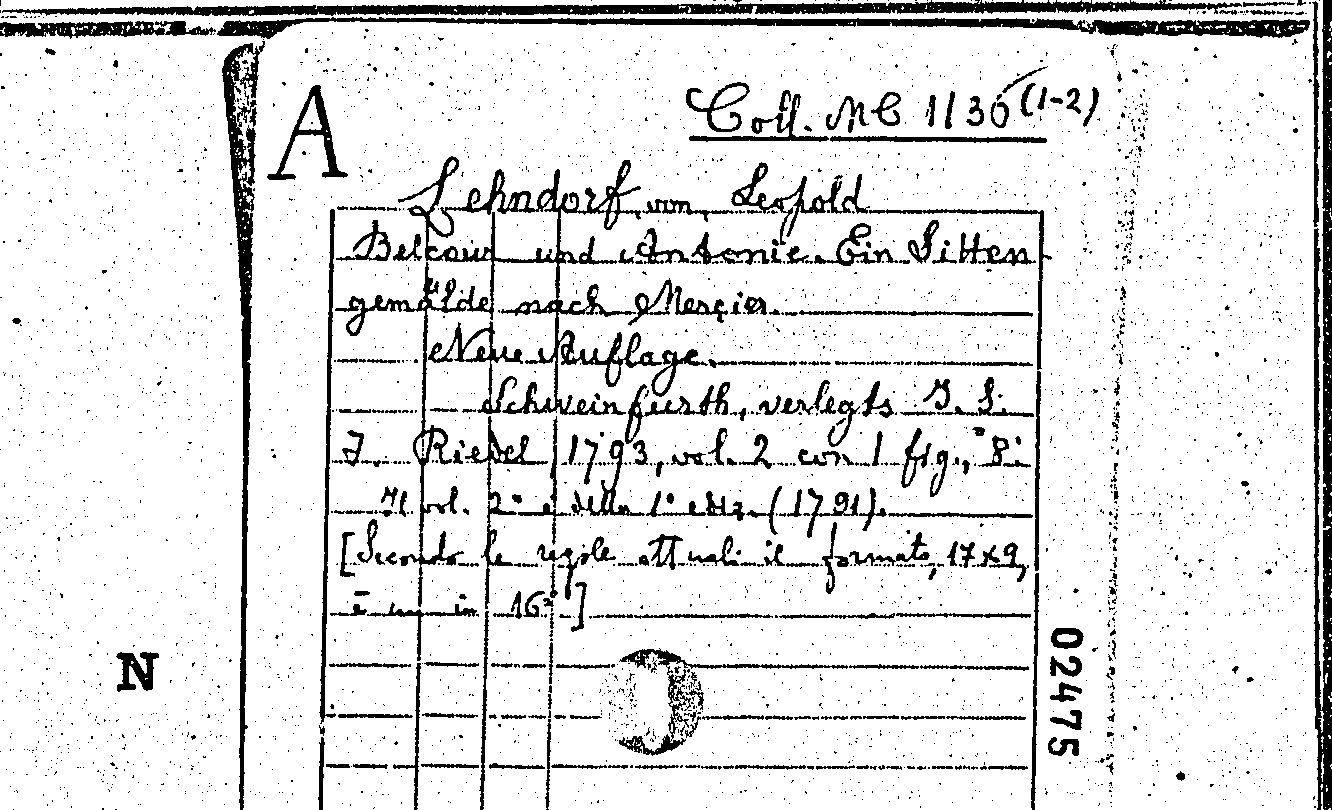 A
Coll. MC 1136 (1-2)
Lehndorf, von, Leopold
Belcour und Antonie. Ein Sitten
gemälde nach Merçier.
Neue Auflage.
Schweinfurth, verlegts J. S.
J. Riedel, 1793, vol. 2 con 1 fig., 8°.
Il vol. 2° è della 1° ediz. (1791).
[Secondo le regole attuali il formato, 17x9,
è un in 16°]
N
02475